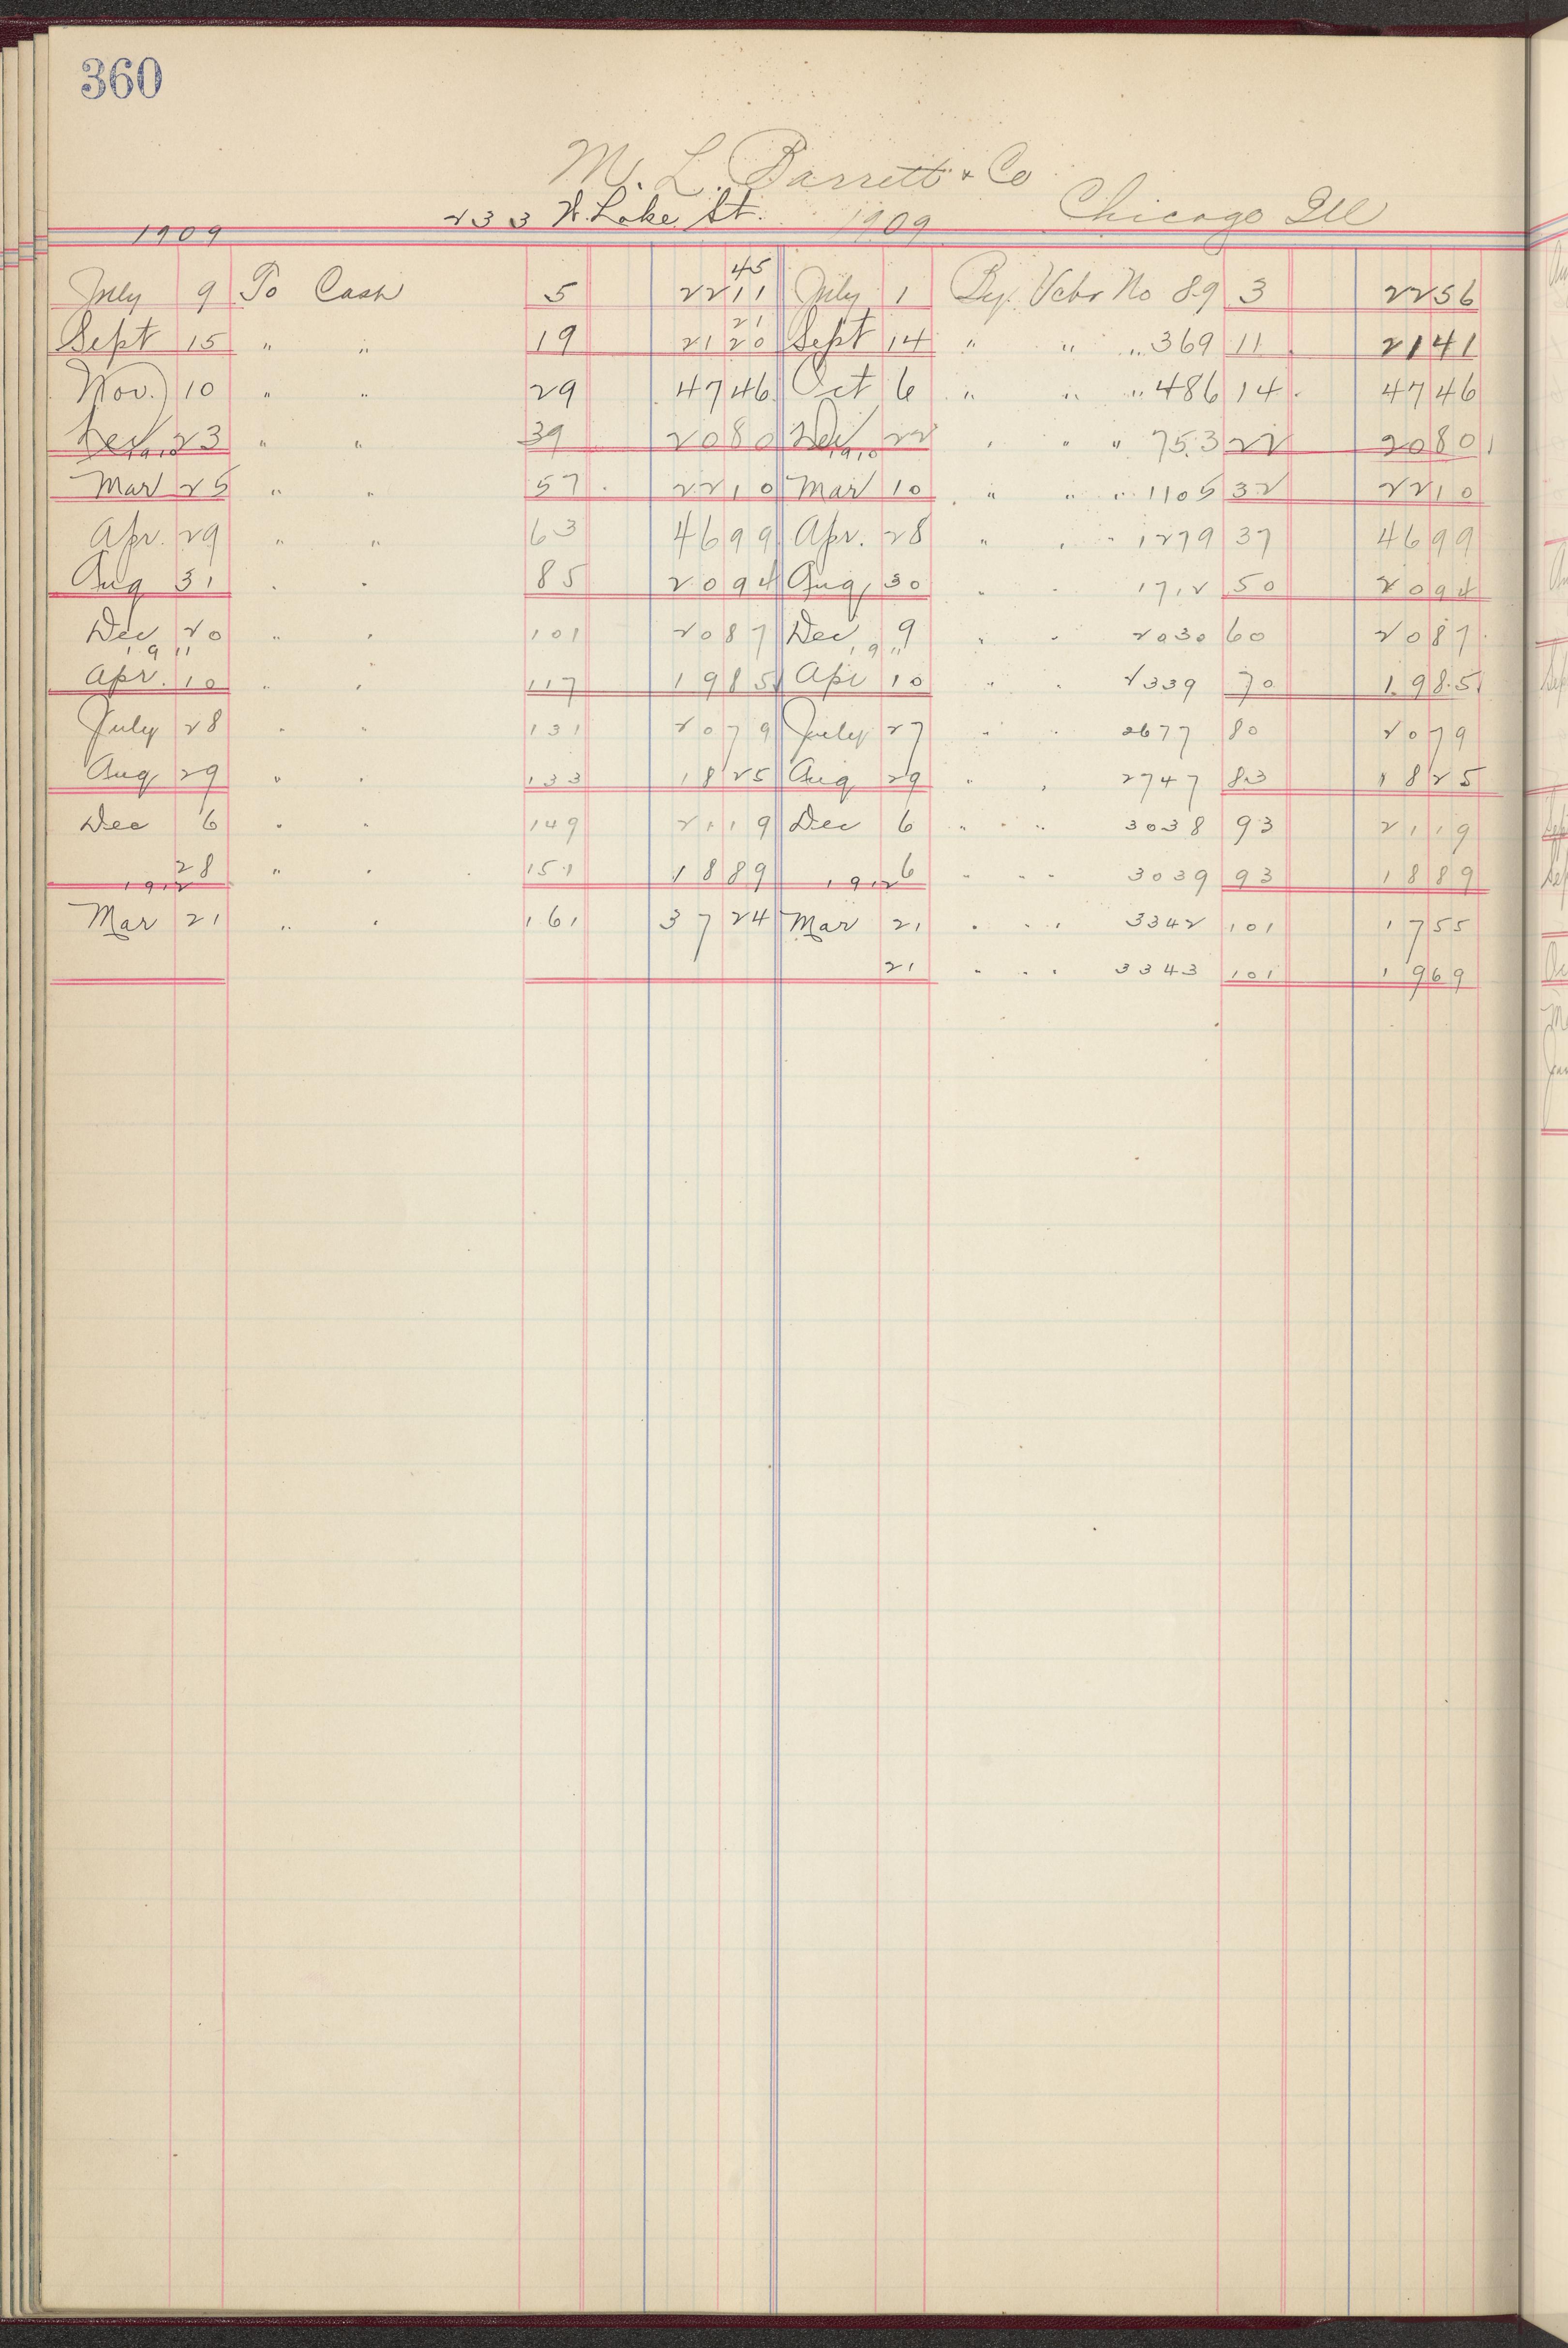 360
M. L. Barrett & Co
233 W. Lake St. Chicago Ill
1909 1909
45
July 9 To Cash 5 2211 July 1 By Vchr No 89 3 2256
21
Sept 15 " " 19 2120 Sept 14 " " " 369 11 2141
Nov. 10 " " 29 4746 Oct 6 " " " 486 14 4746
Dec 23 " " 39 2080 Dec 22 " " " 753 22 2080
1910 1910
Mar 25 " " 57 2210 Mar 10 " " " 1105 32 2210
Apr. 29 " " 63 4699 Apr. 28 " " " 1279 37 4699
Aug 31 " " 85 2094 Aug, 30 " " 1712 50 2094
Dec 20 " " 101 2087 Dec 9 " " 2030 60 2087
1911 1911
Apr. 10 " " 117 1985 Apr 10 " " 2339 70 1985
July 28 " " 131 2079 July 27 " " 2677 80 2079
Aug 29 " " 133 1825 Aug 29 " " 2747 83 1825
Dec 6 " " 149 2119 Dec 6 " " " 3038 93 2119
28 " " 151 1889 6 " " " 3039 93 1889
1912 1912
Mar 21 " " 161 3724 Mar 21 " " " 3342 101 1755
21 " " " 3343 101 1969